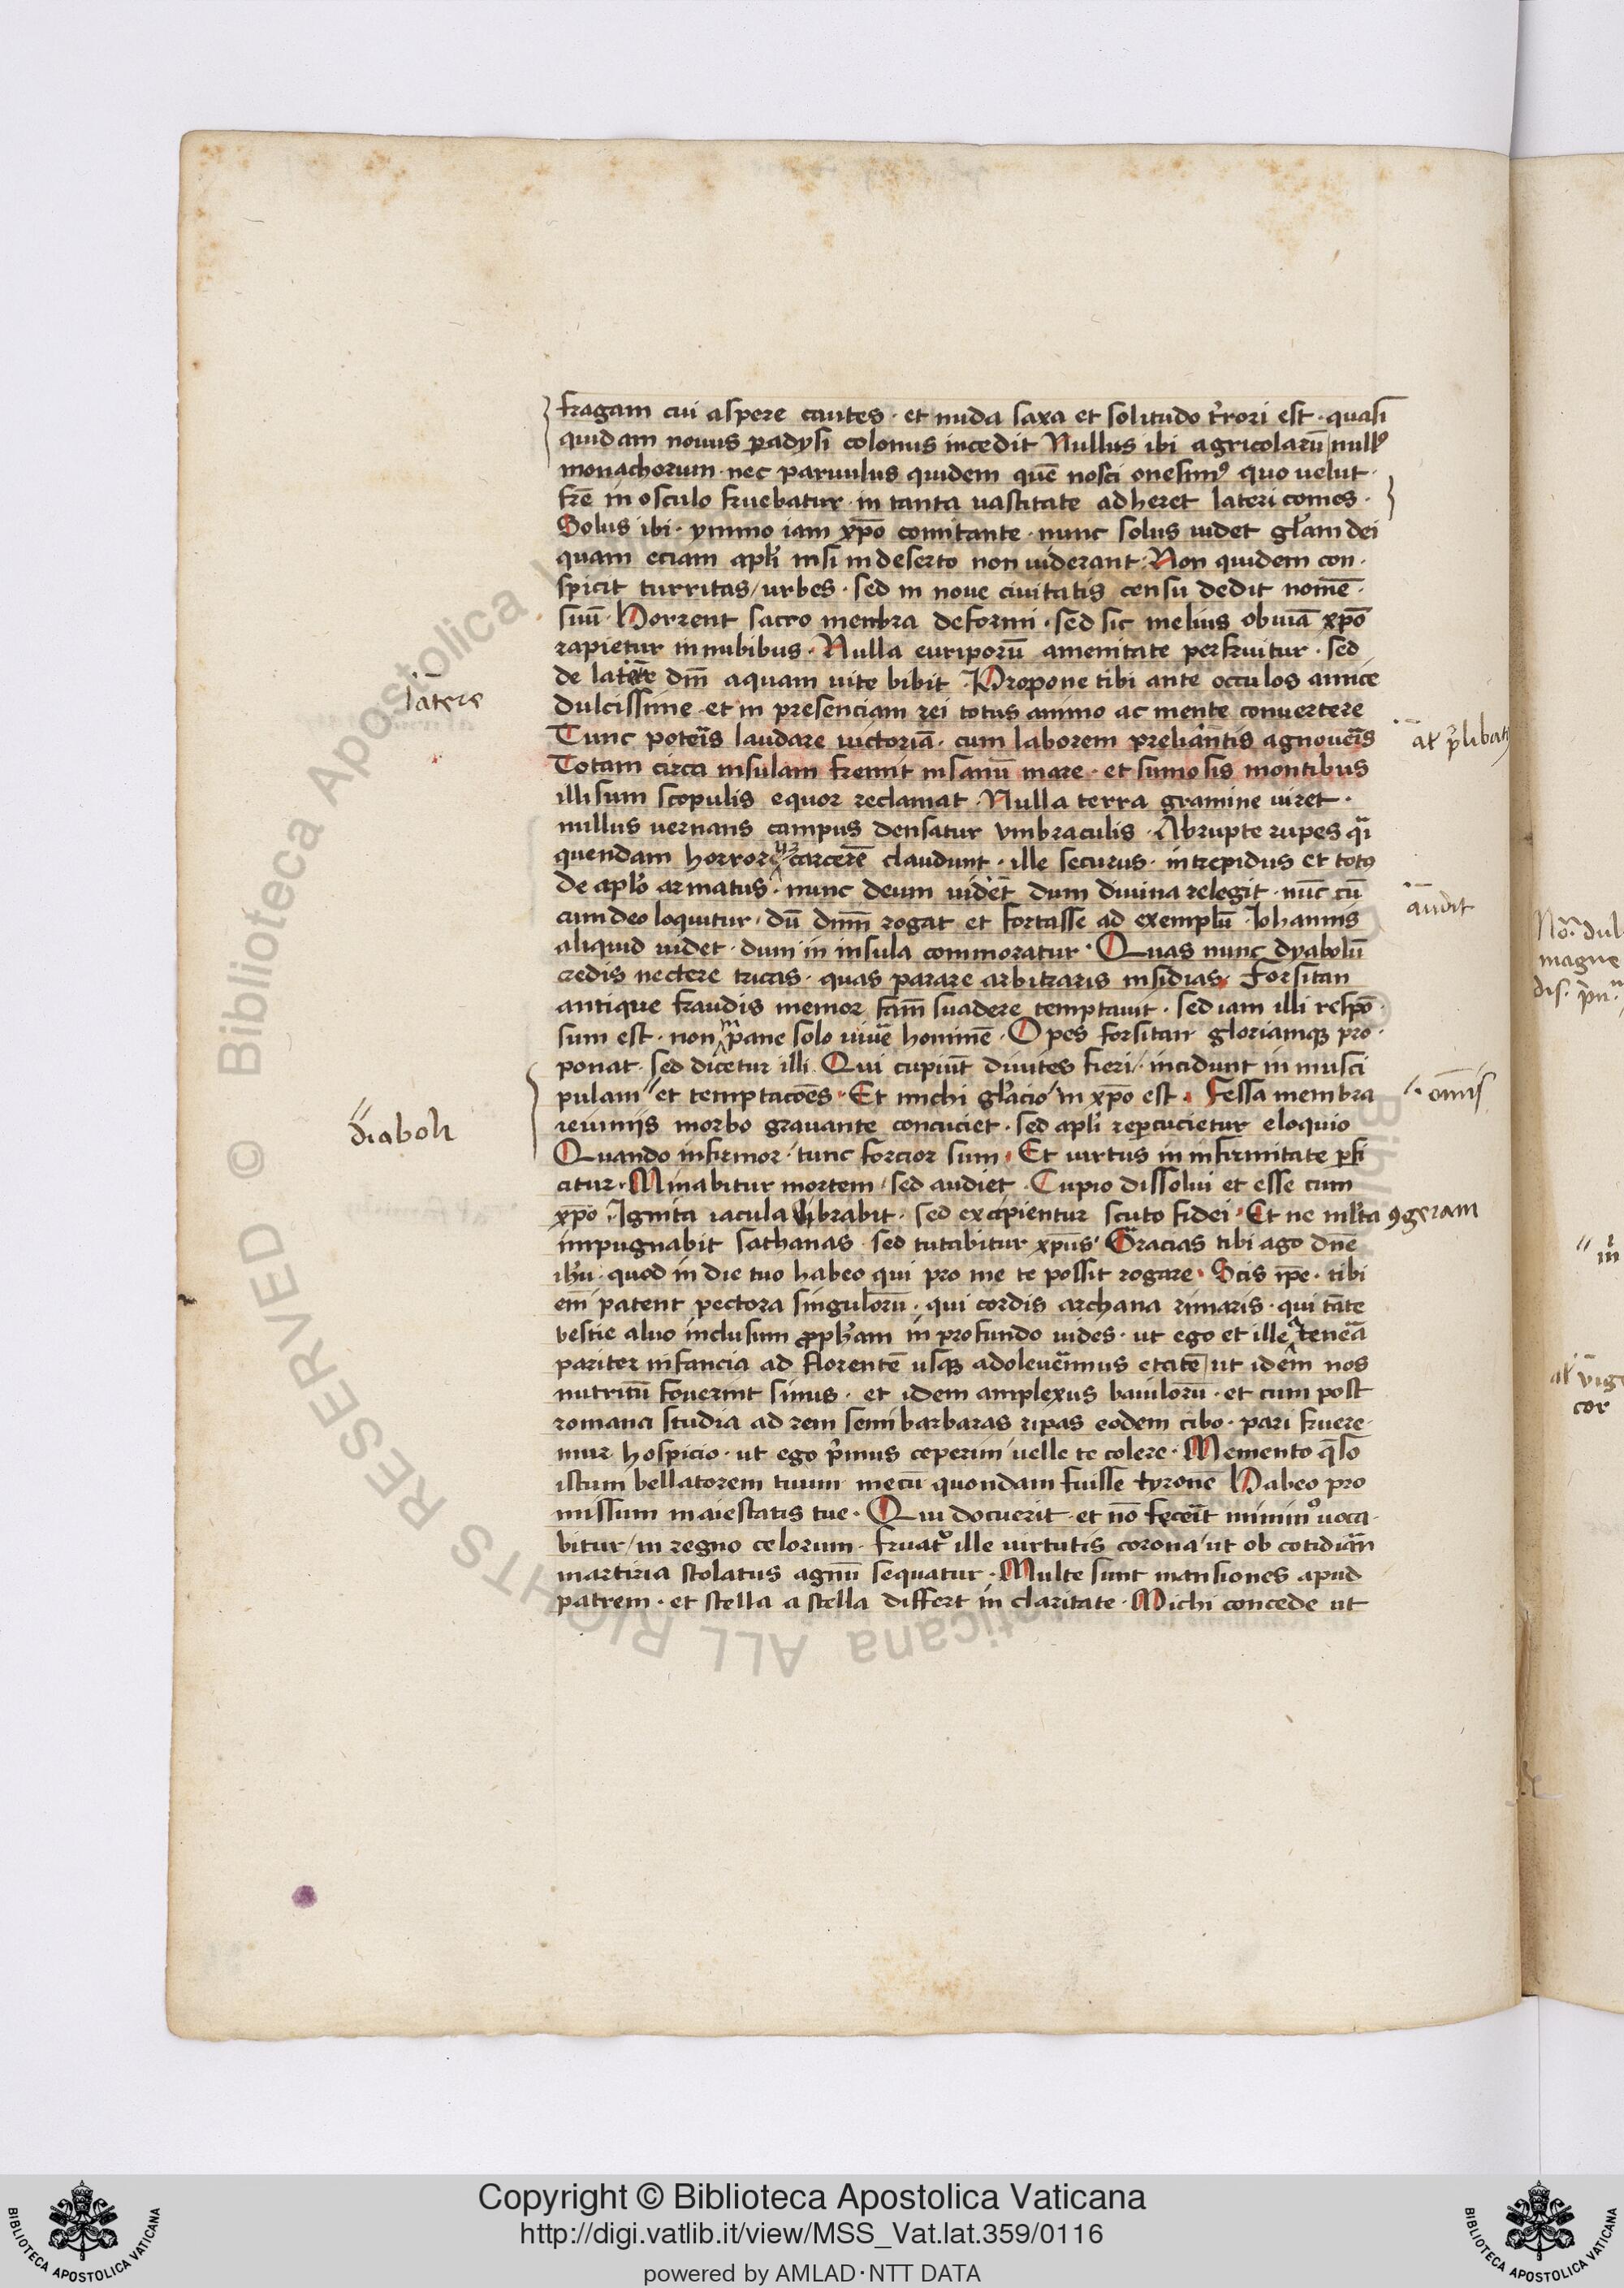 fragam cui aspere cautes · et nuda saxa et solitudo t̓rori est · quasi
quidam nouus padysi colonus incedit Nullus ibi agricolarū null9
monachorum · nec paruulus quidem quē nosci onesim9 quo uelut ·
frē in osculo fruebatur · in tanta uastitate adheret lateri comes ·
Solus ibi · ymmo iam xp̄o comitante · nunc solus uidet gl̓am dei
quam eciam apl̓i nisi in deserto non uiderant · Non quidem con ·
spicit turritas / urbes · sed in noue ciuitatis censu dedit nomē ·
suū · Horrent sacco membra deformi · sed sic melius obuiā xp̄o
rapietur in nubibus · Nulla euriporū amenitate perfruitur · sed
de latere dn̄i aquam uite bibit · Propone tibi ante occulos amice
latere
dulcissime · et in presenciam rei totus animo ac mente conuertere
Tunc potēis laudare uictoriā · cum laborem preliantis agnouēis
al̓ p̓libat
Totam circa insulam fremit insanū mare · et sinuosis montibus
illisum scopulis equor reclamat · Nulla terra gramine uiret ·
nullus uernans campus densatur vmbraculis · Abrupte rupes q̓i
quendam horror carcerē claudunt · ille securus · intrepidus et tot9
de apl̓o armatus · nunc deum uidet dum diuina relegit · nūc cū
audit
cum deo loquitur · dū dn̄m rogat et fortasse ad exemplū Iohannis
aliquid uidet · dum in insula commoratur · Quas nunc dyabolū
credis nectere tricas · quas parare arbitraris insidias · Forsitan
antique fraudis memor fam̄ suadere temptauit · sed iam illi respō ·
sum est · non pane solo uiuē hominē · Opes forsitan gloriamqꝫ pro ·
ponat · sed dicetur illi Qui cupiūt diuites fieri / incidunt in musci
pulam " et temptacōes · Et michi gl̓acio / in xp̄o est · Fessa membra
diaboli
om̄is
ieiuniis morbo grauante concuciet · sed apl̓i repcucietur eloquio
Quando infirmor · tunc forcior sum · Et uirtus in infirmitate pfi
citur · Minabitur mortem / sed audiet · Cupio dissolui et esse cum
xp̄o · Ignita iacula librabit · sed excipientur scuto fidei · Et ne ml̓ta 9geram
impugnabit sathanas · sed tutabitur xp̄us · Gracias tibi ago dn̄e
ih̓u · quod in die tuo habeo qui pro me te possit rogare · Scis ip̄e · tibi
em̄ patent pectora singulorū · qui cordis archana rimaris · qui tāte
bestie aluo inclusum ꝓph̓am in profundo uides · ut ego et ille a teneā
pariter infancia ad florentē usqꝫ adoleuēimus etatē / ut idem nos
nutricū fouerint sinus · et idem amplexus bauilorū · et cum post
romana studia ad rem semibarbaras ripas eodem cibo · pari fruere ·
mur hospicio · ut ego p̓mus ceperim uelle te colere · Memento q̄so
istum bellatorem tuum mecū quondam fuisse tyronē Habeo pro
missum maiestatis tue · Qui docuerit et nō fecēit minim9 uoca ·
bitur / in regno celorum · fruat̓ ille uirtutis corona / ut ob cotidiān
martiria stolatus agnū sequatur · Multe sunt mansiones apud
patrem · et stella a stella differt in claritate · Michi concede ut
Copyright © Biblioteca Apostolica Vaticana
http://digi.vatlib.it/view/MSS_Vat.lat.359/0116
powered by AMLAD·NTT DATA
BIBLIOTECA APOSTOLICA VATICANA
BIBLIOTECA APOSTOLICA VATICANA
© Biblioteca Apostolica Vaticana ALL RIGHTS RESERVED